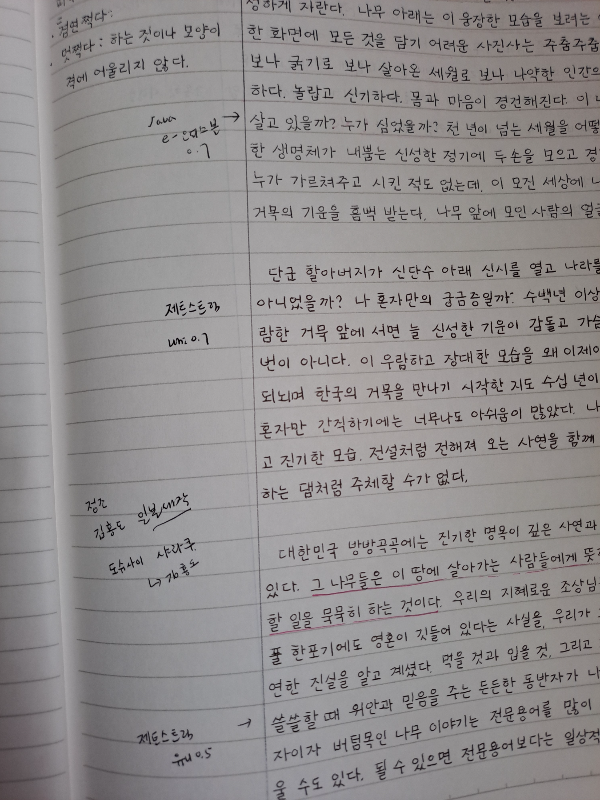 · 겸연쩍다:
· 멋쩍다: 하는 짓이나 모양이
격에 어울리지 않다.
Java
0.7
제트스트림
uni 0.7
정조
김홍도 일본 에서
샤라쿠
↳ 김홍도
제트스트림
유니 0.5
성하게 자란다. 나무 아래는 이 웅장한 모습을 보려는
한 화면에 모든 것을 담기 어려운 사진사는 주춤주춤
보나 굵기로 보나 살아온 세월로 보나 나약한 인간의
하다. 놀랍고 신기하다. 몸과 마음이 경건해진다. 이
→ 살고 있을까? 누가 심었을까? 천 년이 넘는 세월을 어떻
한 생명체가 내뿜는 신성한 정기에 두손을 모으고 경
누가 가르쳐주고 시킨 적도 없는데, 이 모진 세상에
거목의 기운을 흠뻑 받는다. 나무 앞에 모인 사람의 얼굴
단군 할아버지가 신단수 아래 신시를 열고 나라를
아니었을까? 나 혼자만의 궁금증일까? 수백년 이상
람한 거목 앞에 서면 늘 신성한 기운이 감돌고 가슴
번이 아니다. 이 우람하고 장대한 모습을 왜 이제야
되뇌며 한국의 거목을 만나기 시작한 지도 수십 년이
혼자만 간직하기에는 너무나도 아쉬움이 많았다. 나
고 진기한 모습, 전설처럼 전해져 오는 사연을 함께
하는 댐처럼 주체할 수가 없다.
대한민국 방방곡곡에는 진기한 명목이 깊은 사연과
있다. 그 나무들은 이 땅에 살아가는 사람들에게 뜻
할 일을 묵묵히 하는 것이다. 우리의 지혜로운 조상님
풀 한포기에도 영혼이 깃들어 있다는 사실을, 우리가
연한 진실을 알고 계셨다. 먹을 것과 입을 것, 그리고
→ 쓸쓸할 때 위안과 믿음을 주는 든든한 동반자가 나
자이자 버팀목인 나무 이야기는 전문용어를 많이
울 수도 있다. 될 수 있으면 전문용어보다는 일상적